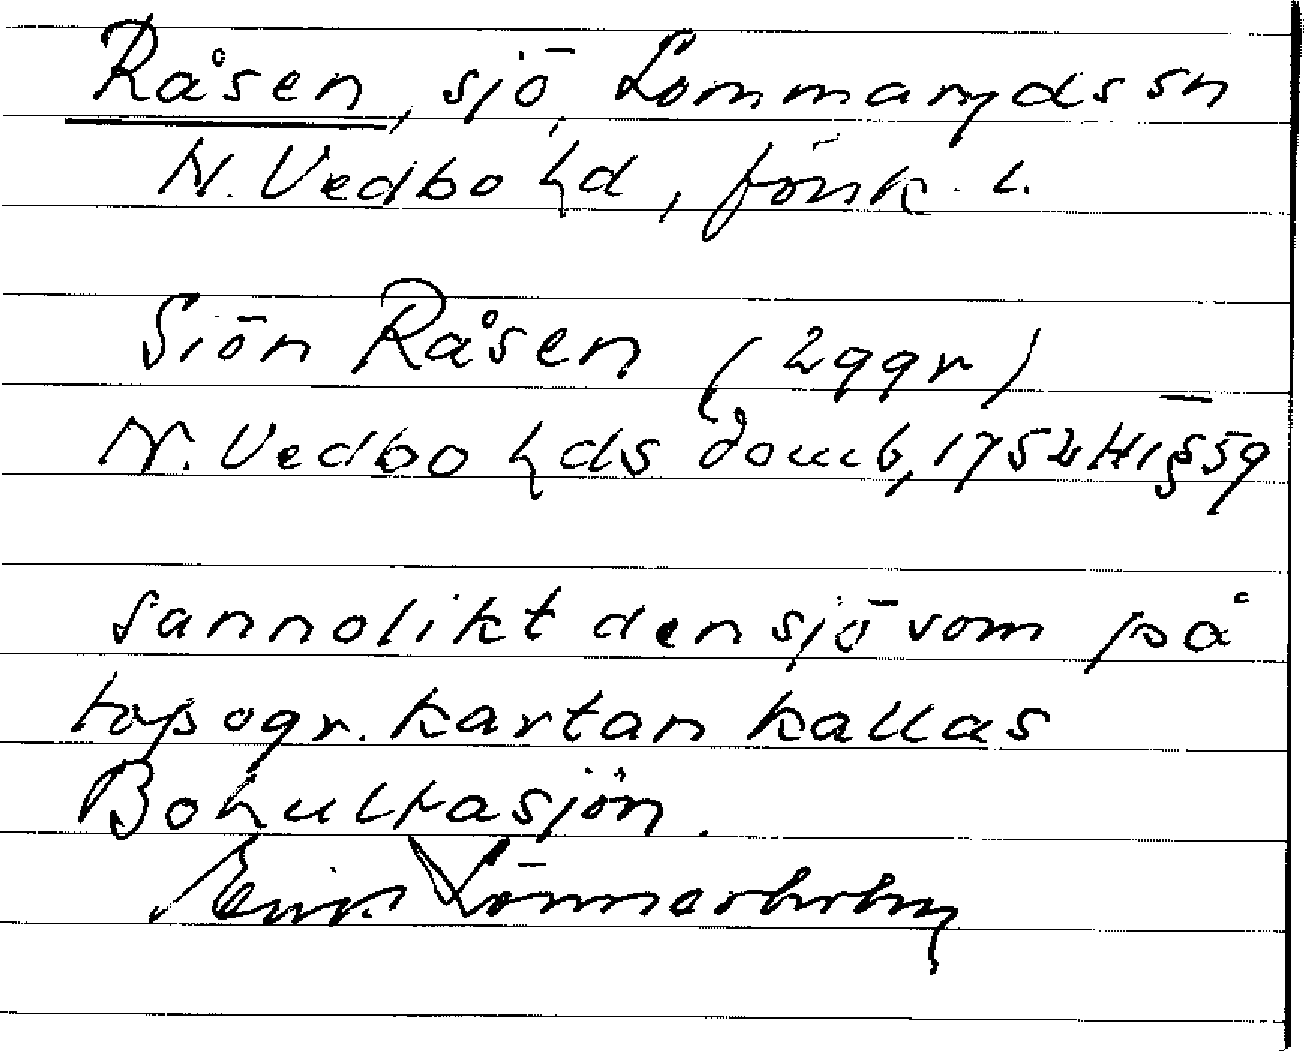 Råsen, sjö, Lommaryds sn
N. Vedbo hd, Jönk. l.
Siön Råsen (2ggr)
N. Vedbo hds domb, 1752 HI § 59
Sannolikt den sjö som på
topogr. kartan kallas
Bohultasjön.
Erik Lönnerholm